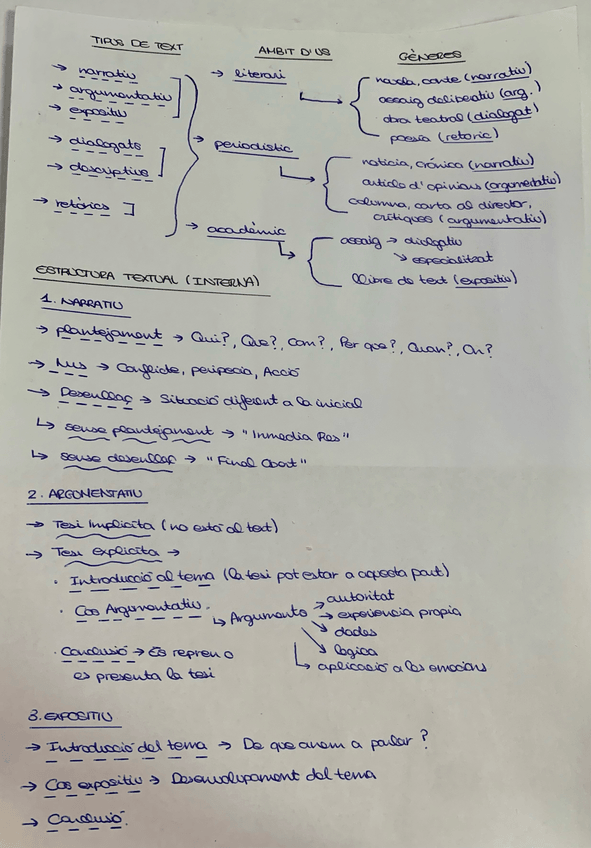 TIPUS DE TEXT
ÀMBIT D'ÚS
GÈNERES
→ narratiu
→ argumentatiu
→ expositiu
→ dialogats
→ descriptius
→ retòrics
→ literari
novela, conte (narratiu)
assaig deliberatiu (arg.)
obra teatral (dialogat)
poesia (retoric)
→ periodístic
notícia, crónica (narratiu)
article d'opinions (argumentatiu)
columna, carta al director,
crítiques (argumentatiu)
→ acadèmic
assaig → divulgatiu
↘ especialitzat
llibre de text (expositiu)
ESTRUCTURA TEXTUAL (INTERNA)
1. NARRATIU
→ plantejament → Qui?, Que?, com?, Per que?, Quan?, On?
→ Nus → Conflicte, peripecia, Acció
→ Desenllaç → Situació diferent a la inicial
↳ sense plantejament → "Inmedia Res"
↳ sense desenllaç → "Final Obert"
2. ARGUMENTATIU
→ Tesi Implícita (no està al text)
→ Tesi explícita →
· Introducció al tema (la tesi pot estar a aquesta part)
· Cos Argumentatiu.
↳ Arguments
→ autoritat
→ experiència propia
↘ dades
↘ logica
↳ aplicació a les emocions
· Conclusió → Es repren o
es presenta la tesi
3. EXPOSITIU
→ Introducció del tema → De que anem a parlar?
→ Cos expositiu → Desenvolupament del tema
→ Conclusió.